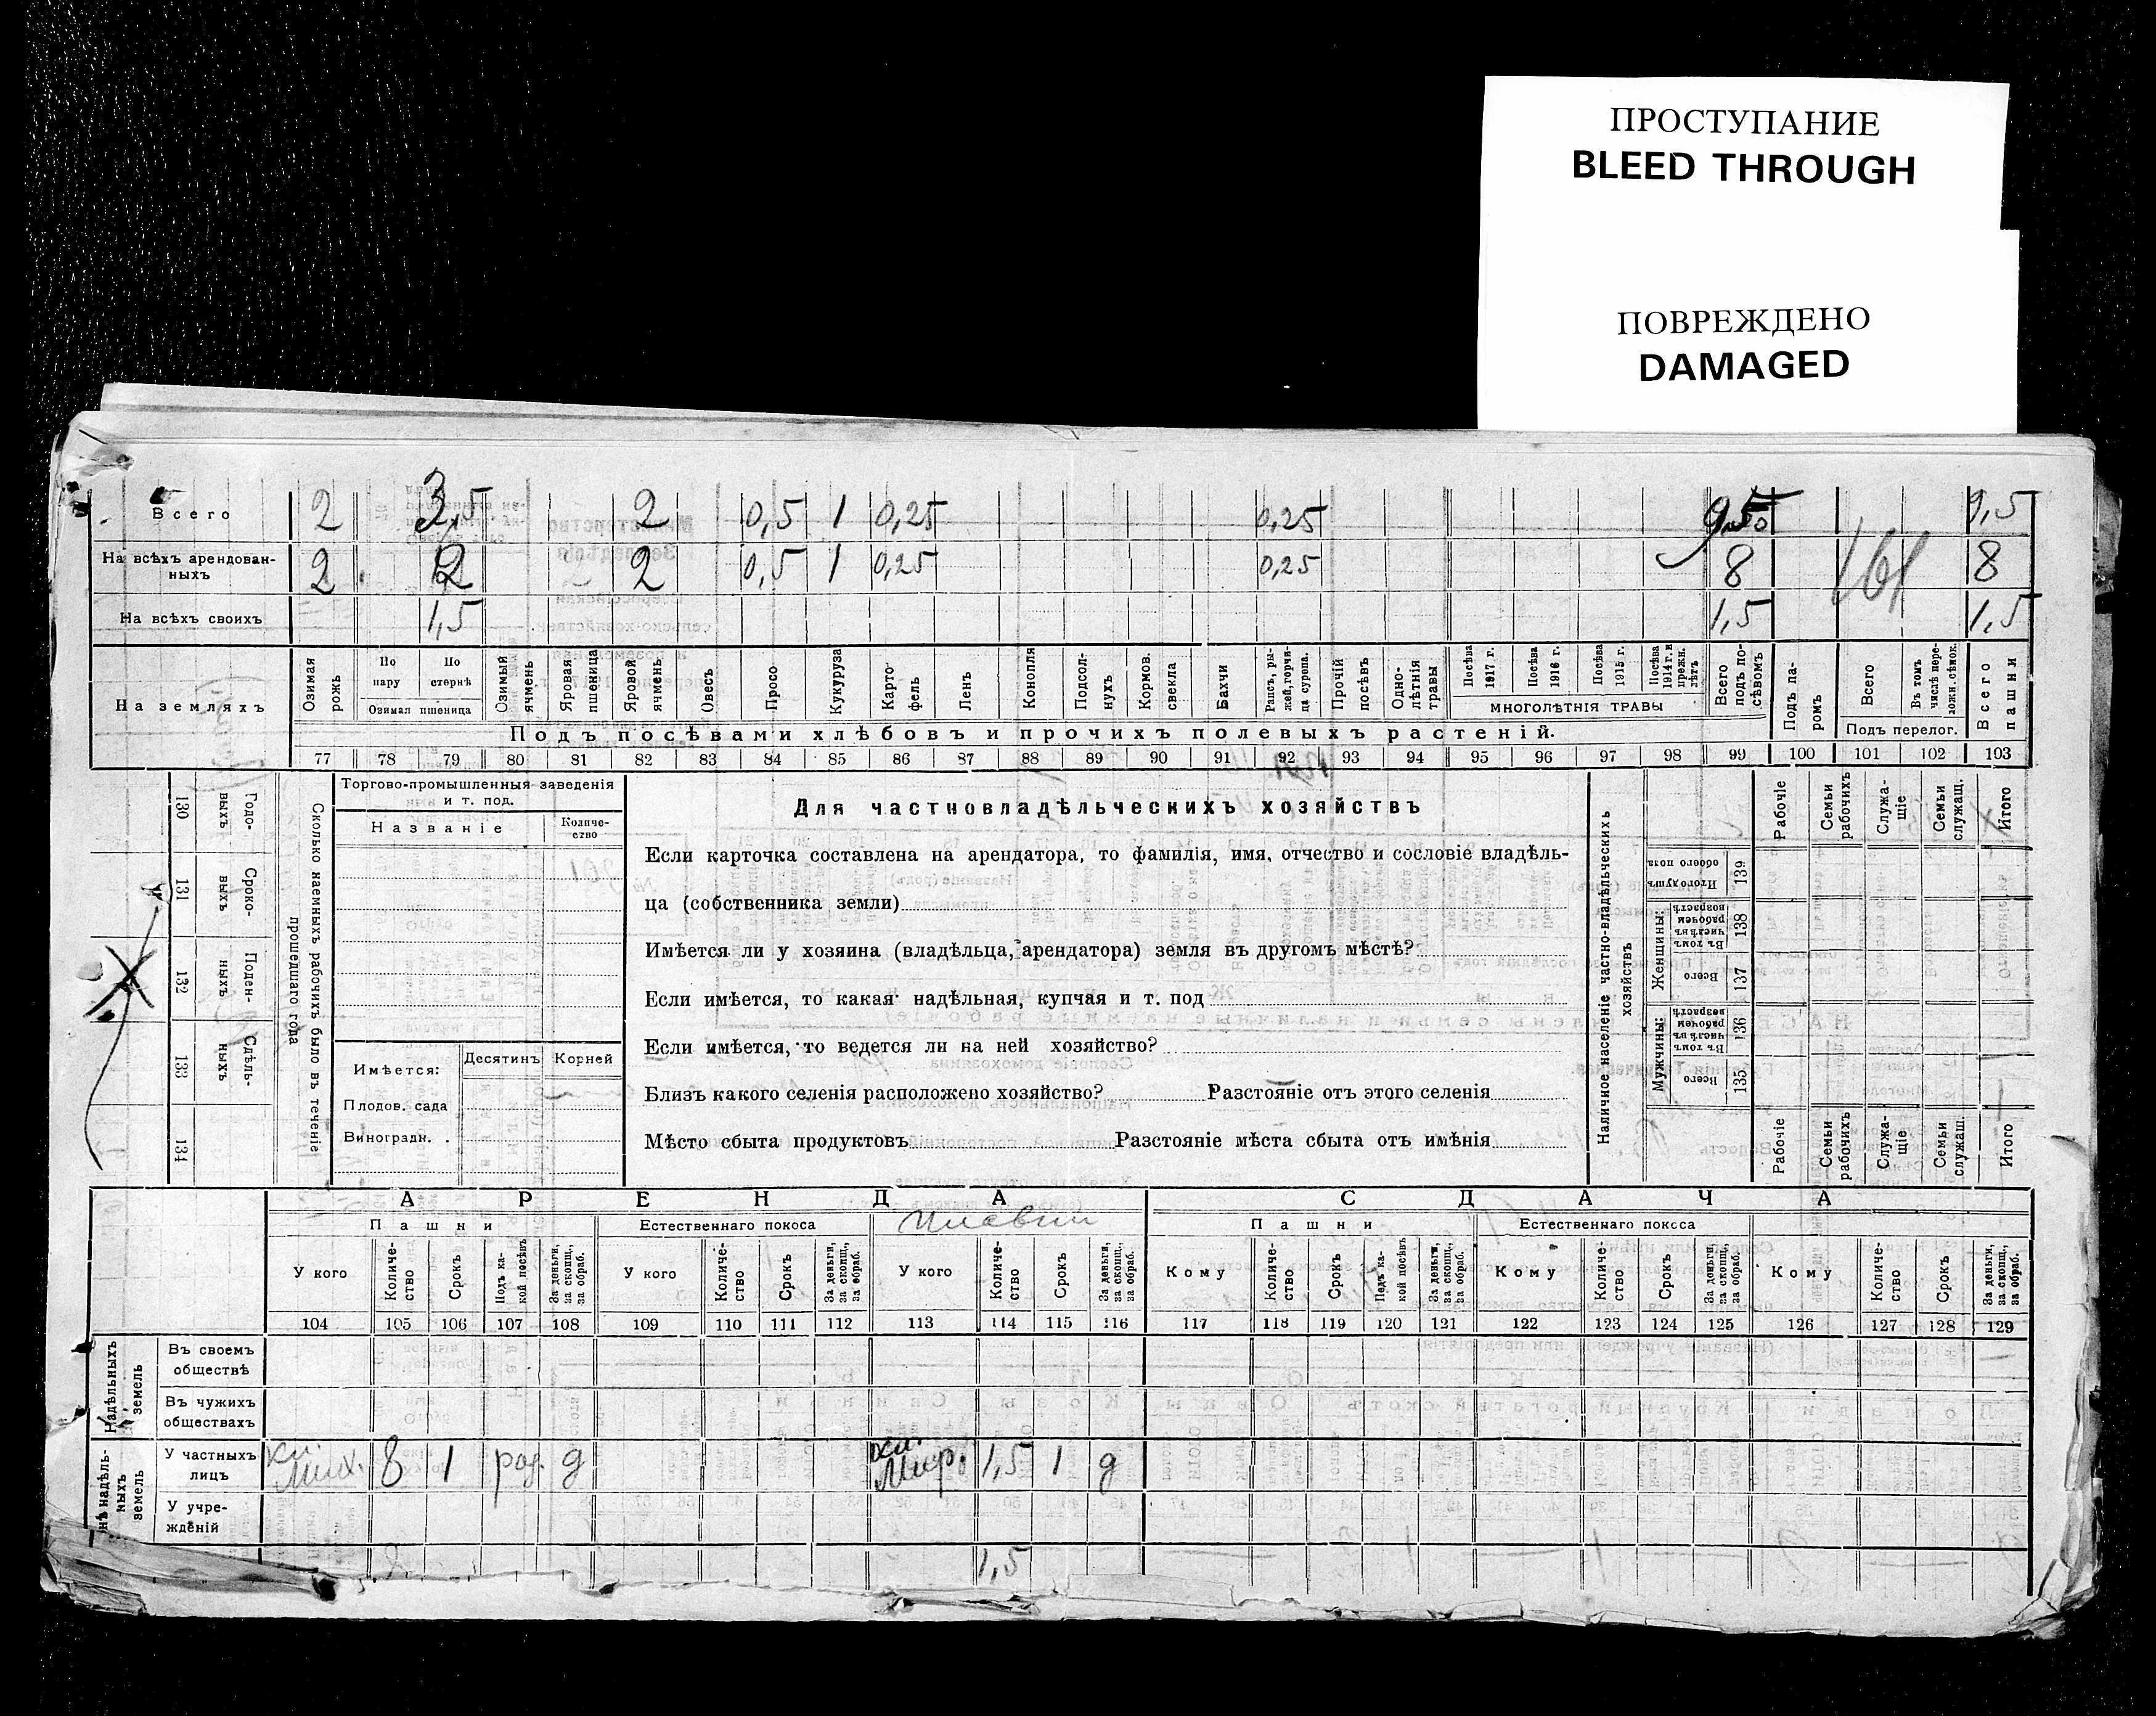 ПРОСТУПАНИЕ
BLEED THROUGH
ПОВРЕЖДЕНО
DAMAGED
Всего 2 3,5 2 0,5 1 0,25 0,25 9,5
На всѣхъ арендован-
ныхъ 2 2 2 0,5 1 0,25 0,25 8 8
На всѣхъ своихъ 1,5 1,5 1,5
161
На земляхъ
Озимая рожь
По пару
По стернѣ
Озимая пшеница
Озимый ячмень
Яровая пшеница
Яровой ячмень
Овесъ
Просо
Кукуруза
Карто-фель
Ленъ
Конопля
Подсол-нухъ
Кормов. свекла
Бахчи
Рапсъ, ры-жей, горчи-ца сурепа.
Прочій посѣвъ
Одно-лѣтнія травы
Посѣва 1917 г.
Посѣва 1916 г.
Посѣва 1915 г.
Посѣва 1914 г. и прежн. лѣтъ
МНОГОЛѢТНІЯ ТРАВЫ
Всего подъ по-сѣвомъ
Подъ па-ромъ
Всего
Въ томъ числѣ пере-ложн. сѣнок.
Подъ перелог.
Всего пашни
Подъ посѣвами хлѣбовъ и прочихъ полевыхъ растеній.
77 78 79 80 81 82 83 84 85 86 87 88 89 90 91 92 93 94 95 96 97 98 99 100 101 102 103
130 Годо-выхъ
131 Сроко-выхъ
132 Поден-ныхъ
133 Сдѣль-ныхъ
134
Сколько наемныхъ рабочихъ было въ теченіе прошедшаго года
Торгово-промышленныя заведенія
и т. под.
Названіе
Количе-
ство
Имѣется:
Десятинъ Корней
Плодов. сада
Виноградн.
Для частновладѣльческихъ хозяйствъ
Если карточка составлена на арендатора, то фамилія, имя, отчество и сословіе владѣль-
ца (собственника земли)
Имѣется ли у хозяина (владѣльца, арендатора) земля въ другомъ мѣстѣ?
Если имѣется, то какая: надѣльная, купчая и т. под
Если имѣется, то ведется ли на ней хозяйство?
Близъ какого селенія расположено хозяйство? Разстояніе отъ этого селенія
Мѣсто сбыта продуктовъ Разстояніе мѣста сбыта отъ имѣнія
Наличное населеніе частно-владѣльческихъ хозяйствъ
Мужчины:
Всего 135
Въ томъ числѣ въ рабочемъ возрастѣ 136
Женщины:
Всего 137
Въ томъ числѣ въ рабочемъ возрастѣ 138
Итого душъ обоего пола 139
Рабочіе
Семьи рабочихъ
Служа-щіе
Семьи служащ.
Итого
Рабочіе
Семьи рабочихъ
Служа-щіе
Семьи служащ.
Итого
АРЕНДА
СДАЧА
Пашни
Естественнаго покоса
плавни
Пашни
Естественнаго покоса
У кого
Количе-ство
Срокъ
Подъ ка-кой посѣвъ
За деньги, за скопщ., за обраб.
У кого
Количе-ство
Срокъ
За деньги, за скопщ., за обраб.
У кого
Количе-ство
Срокъ
За деньги, за скопщ., за обраб.
Кому
Количе-ство
Срокъ
Подъ ка-кой посѣвъ
За деньги, за скопщ., за обраб.
Кому
Количе-ство
Срокъ
За деньги, за скопщ., за обраб.
Кому
Количе-ство
Срокъ
За деньги, за скопщ., за обраб.
104 105 106 107 108 109 110 111 112 113 114 115 116 117 118 119 120 121 122 123 124 125 126 127 128 129
Надѣльныхъ земель
Въ своемъ
обществѣ
Въ чужихъ
обществахъ
нѣ надѣль-ныхъ земель
У частныхъ
лицъ 8 1 д 1,5 1 д
У учре-
жденій
1,5